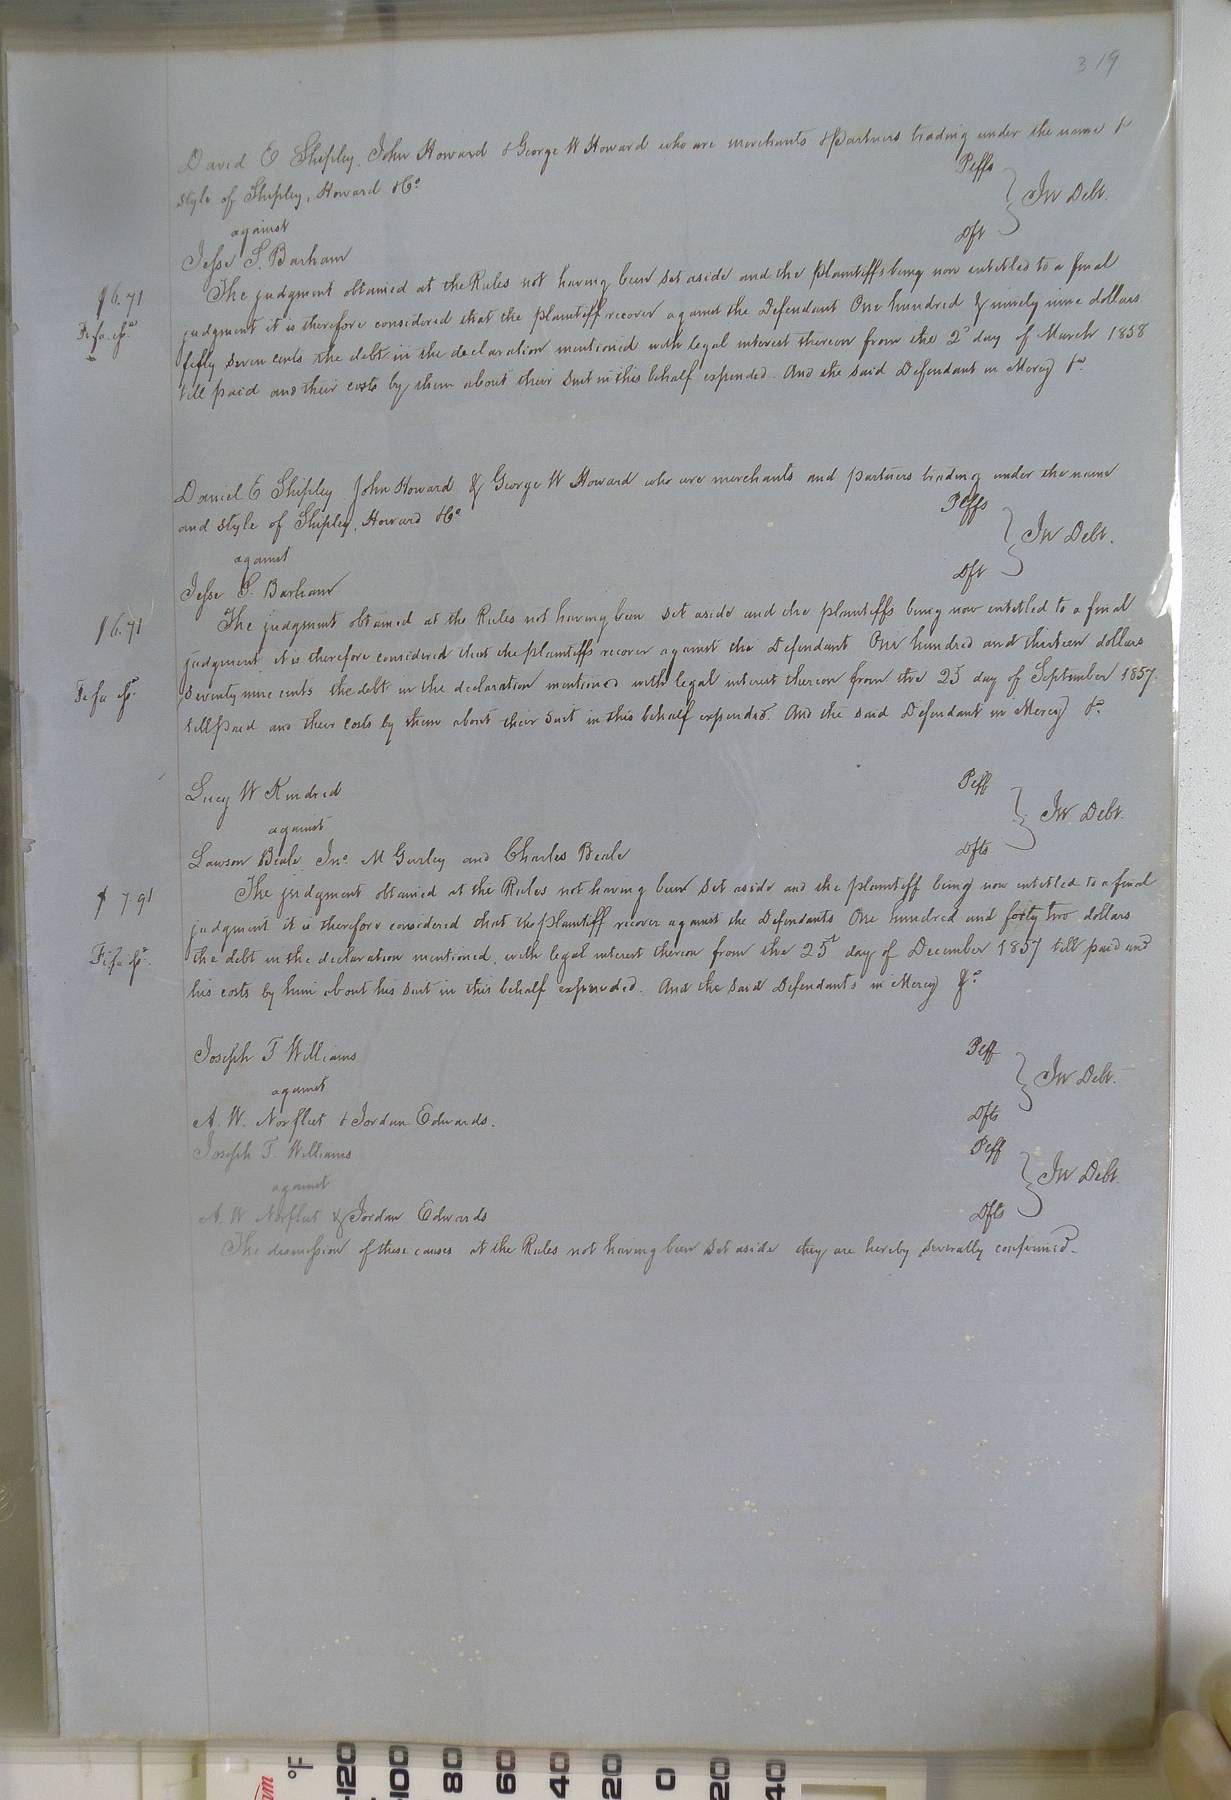 319
David E Shipley, John Howard & George W Howard who are merchants & partners trading under the name &
style of Shipley, Howard & Co Plffs
against In Debt.
Jesse S. Barham Dft
$6.71 The judgment obtained at the Rules not having been set aside and the plaintiffs being now entitled to a final
Fi. fa. judgment it is therefore considered that the plaintiff recover against the Defendant One hundred & ninety nine dollars
fifty seven cents the debt in the declaration mentioned with legal interest thereon from the 2d day of March 1858
till paid and their costs by them about their suit in this behalf expended. And the said Defendant in Mercy &c
Daniel E Shipley John Howard & George W Howard who are merchants and partners trading under the name
and style of Shipley, Howard & Co Plffs
against In Debt.
Jesse S. Barham Dft
$6.71 The judgment obtained at the Rules not having been set aside and the plaintiffs being now entitled to a final
judgment it is therefore considered that the plaintiffs recover against the Defendant One hundred and thirteen dollars
Fi fa seventy nine cents the debt in the declaration mentioned with legal interest thereon from the 25 day of September 1857
till paid and their costs by them about their suit in this behalf expended. And the said Defendant in Mercy &c
Lucy W Kindred Plff
against In Debt.
Lawson Beale Jno. M Gurley and Charles Beale Dfts
$7.91 The judgment obtained at the Rules not having been set aside and the plaintiff being now entitled to a final
judgment it is therefore considered that the plaintiff recover against the Defendants One hundred and forty two dollars
Fi. fa. the debt in the declaration mentioned, with legal interest thereon from the 25 day of December 1857 till paid and
his costs by him about his suit in this behalf expended. And the said Defendants in Mercy &c
Joseph T Williams Plff
against In Debt.
A. W. Norfleet & Jordan Edwards. Dfts
Joseph T. Williams Plff
against In Debt.
A. W Norfleet & Jordan Edwards Dfts
The dismission of these causes at the Rules not having been set aside they are hereby severally confirmed.
°F 120 100 80 60 40 20 0 20 40